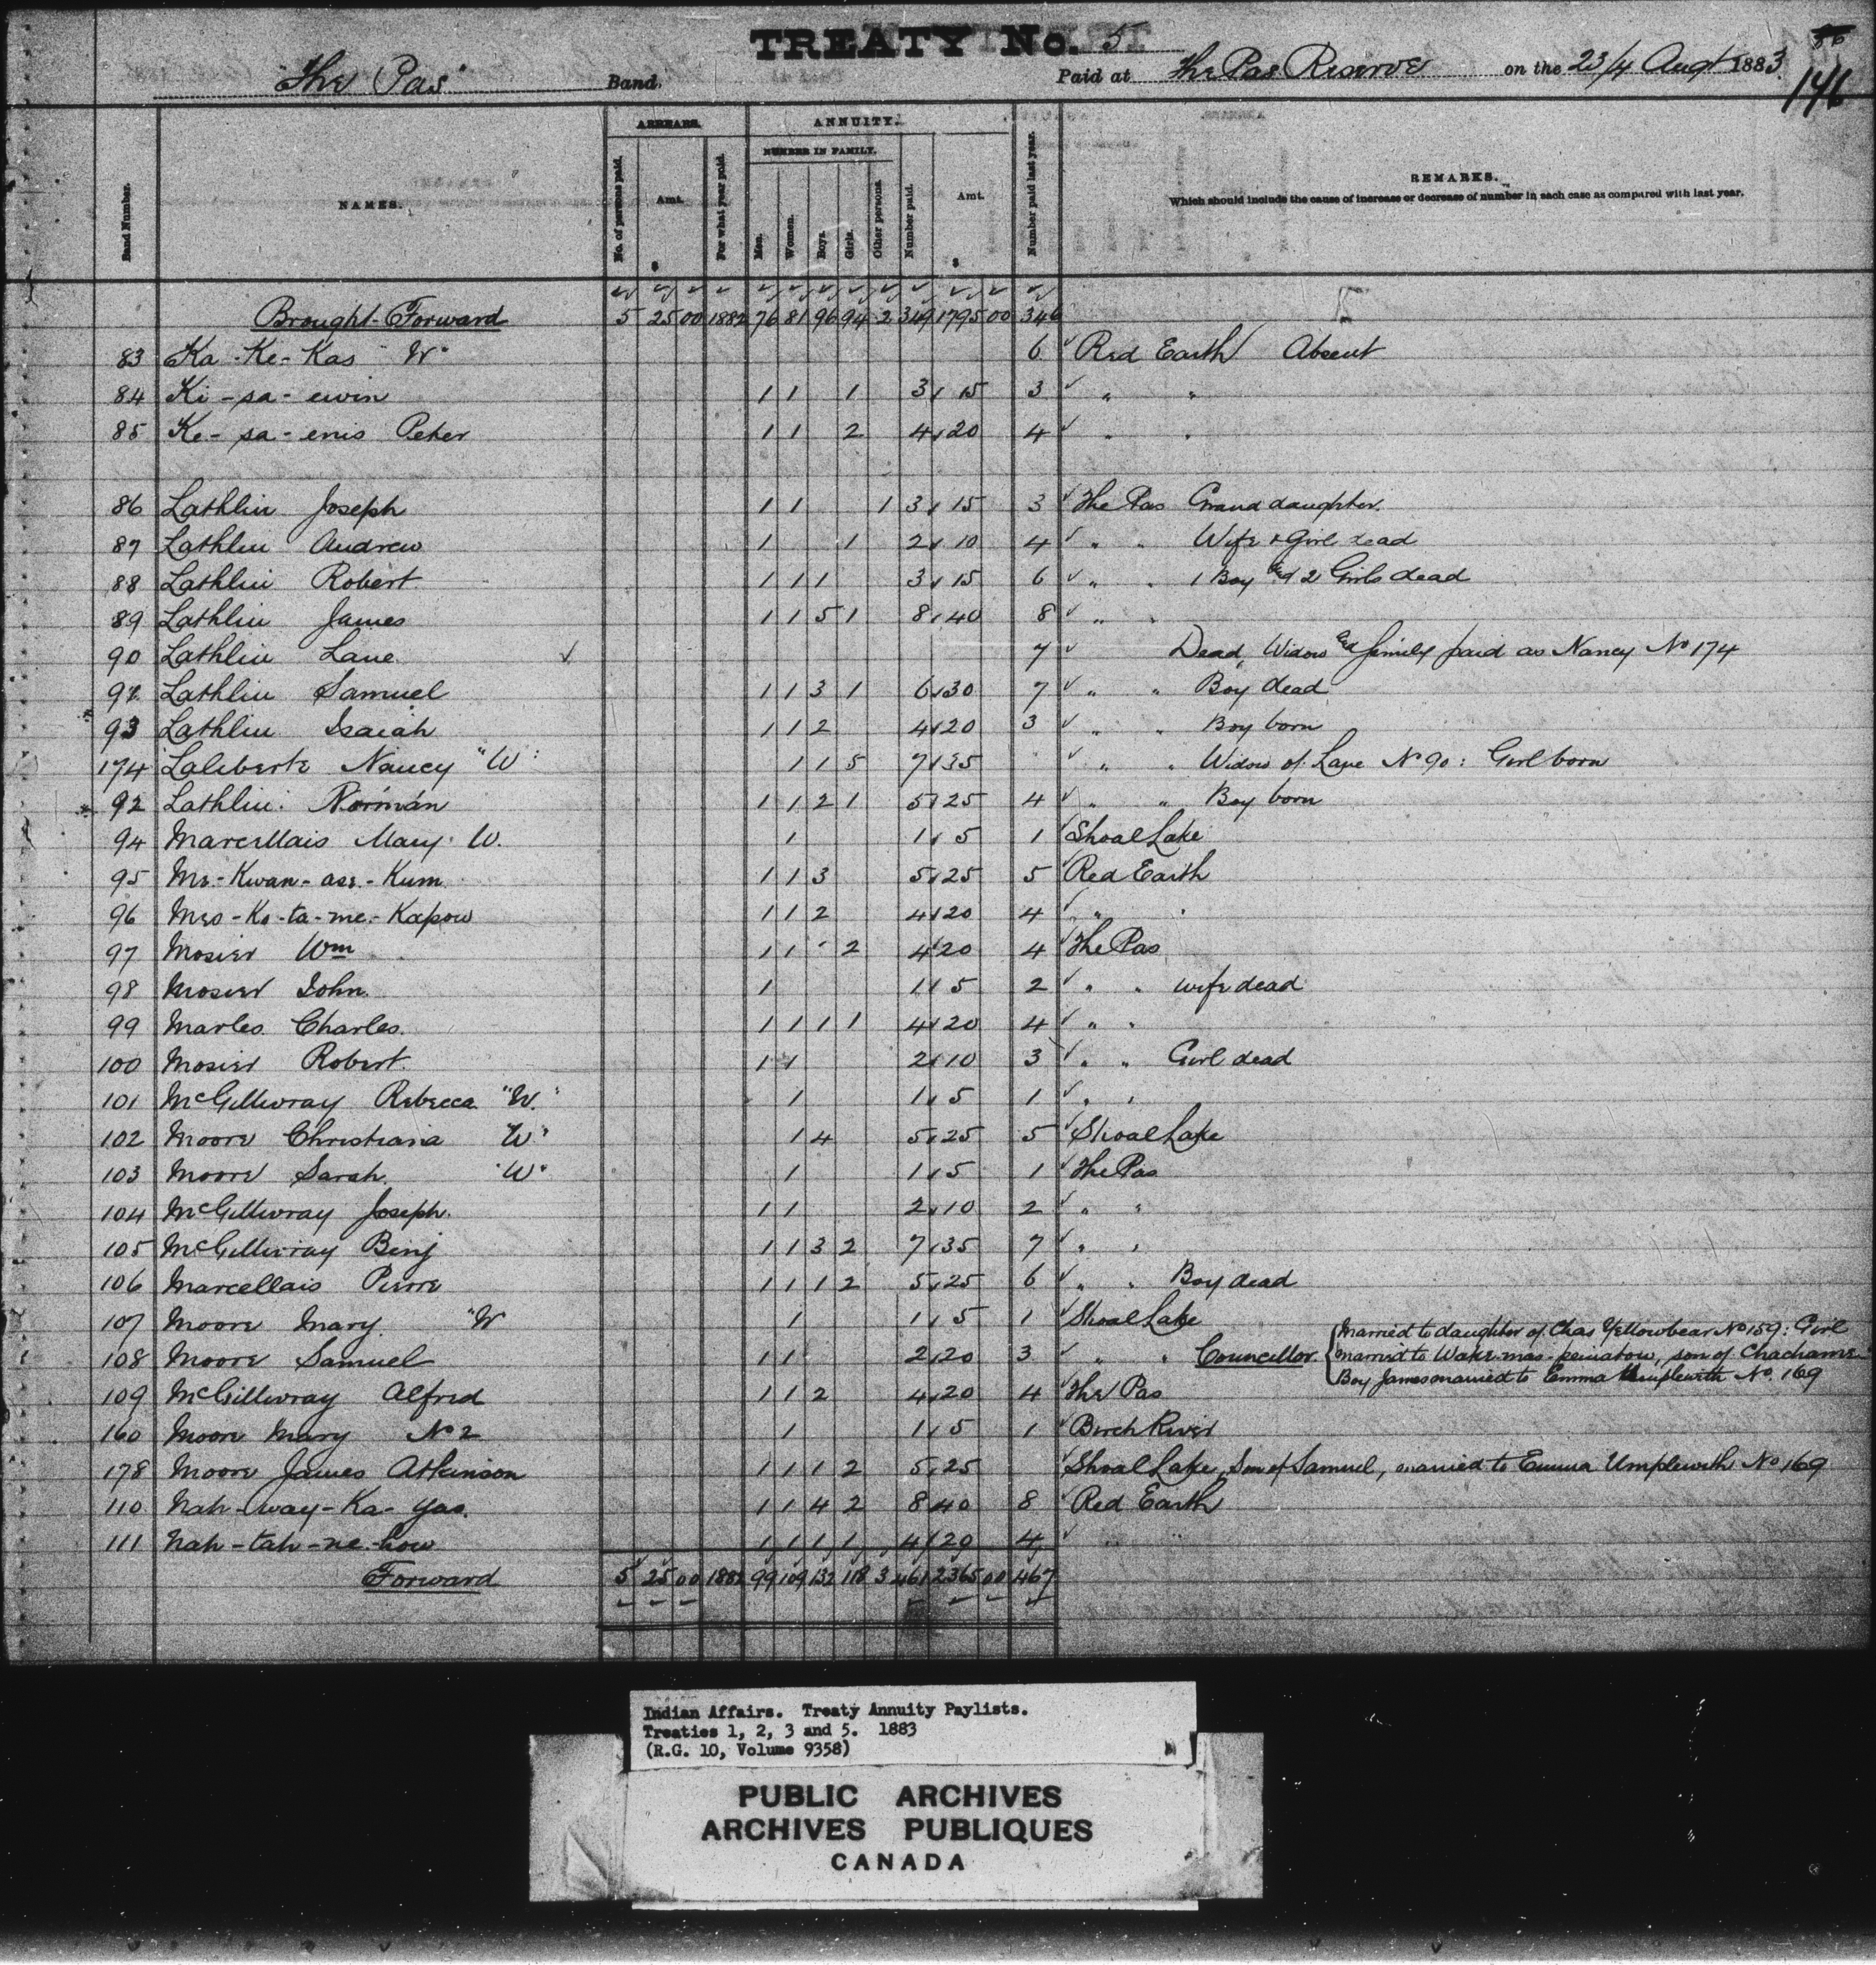 TREATY No. 5
86
"The Pas" Band. Paid at The Pas Reserve on the 23/4 Augt 1883.
146
Band Number. NAMES. ARREARS. No. of persons paid. Amt. $ For what year paid. ANNUITY. NUMBER IN FAMILY. Men. Women. Boys. Girls. Other persons. Number paid. Amt. $ Number paid last year. REMARKS.
Which should include the cause of increase or decrease of number in each case as compared with last year.
Brought Forward 5 25 00 1882 76 81 96 94 2 349 1795 00 346
83 Ka-Ke-Kas "W" 6 Red Earth Absent
84 Ki-sa-ewin 1 1 1 3 15 3 " "
85 Ke-sa-enis Peter 1 1 2 4 20 4 " "
86 Lathlin Joseph 1 1 1 3 15 3 The Pas Grand daughter.
87 Lathlin Andrew 1 1 2 10 4 " " Wife & Girl dead
88 Lathlin Robert 1 1 1 3 15 6 " " 1 Boy & 2 Girls dead
89 Lathlin James 1 1 5 1 8 40 8 " "
90 Lathlin Lane 7 Dead, Widow & family paid as Nancy No 174
91 Lathlin Samuel 1 1 3 1 6 30 7 " " Boy dead
93 Lathlin Isaiah 1 1 2 4 20 3 " " Boy born
174 Laliberte Nancy "W" 1 1 5 7 35 " " Widow of Lane No 90: Girl born
92 Lathlin Norman 1 1 2 1 5 25 4 " " Boy born
94 Marcellais Mary W. 1 1 5 1 Shoal Lake
95 Me-Kwan-ase-Kum 1 1 3 5 25 5 Red Earth
96 Mes-Ko-ta-me-Kapow 1 1 2 4 20 4 " "
97 Mosier Wm 1 1 2 4 20 4 The Pas
98 Mosier John. 1 1 5 2 " " wife dead
99 Marles Charles. 1 1 1 1 4 20 4 " "
100 Mosier Robert. 1 1 2 10 3 " " Girl dead
101 McGillivray Rebecca "W." 1 1 5 1 " "
102 Moore Christiana "W" 1 4 5 25 5 Shoal Lake
103 Moore Sarah. "W" 1 1 5 1 The Pas
104 McGillivray Joseph. 1 1 2 10 2 " "
105 McGillivray Benj 1 1 3 2 7 35 7 " "
106 Marcellais Pierre 1 1 1 2 5 25 6 " " Boy dead
107 Moore Mary. "W" 1 1 5 1 Shoal Lake
108 Moore Samuel 1 1 2 20 3 " " Councillor
Married to daughter of Chas Yellowbear No 159: Girl
married to son of
Boy James married to Emma Umplewith No. 169
109 McGillivray Alfred 1 1 2 4 20 4 The Pas
160 Moore Mary No 2 1 1 5 1 Birch River
178 Moore James Atkinson 1 1 1 2 5 25 Shoal Lake, Son of Samuel, married to Emma Umplewith No 169
110 Nah-way-Ka-yas. 1 1 4 2 8 40 8 Red Earth
111 Nah-tah-ne-how 1 1 1 1 4 20 4 " "
Forward 5 25 00 1882 99 109 132 118 3 461 2365 00 467
Indian Affairs. Treaty Annuity Paylists.
Treaties 1, 2, 3 and 5. 1883
(R.G. 10, Volume 9358)
PUBLIC ARCHIVES
ARCHIVES PUBLIQUES
CANADA